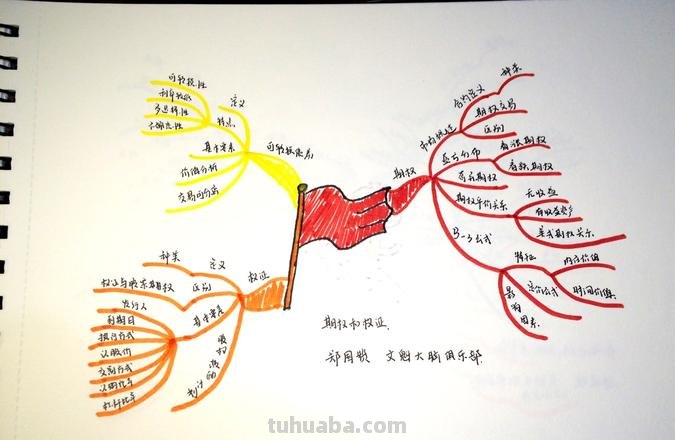 可转换性
利率较低
多选择性
不确定性
定义
特点
基本要素
价值分析
交易的分离
可转换债券
期权
合约定义
种类
期权交易
区别
市场概述
盈亏分布
看涨期权
看跌期权
奇异期权
期权平价关系
无收益
有收益资产
美式期权关系
B-S公式
特征
内在价值
时间价值
定价公式
影响
因素
权证
定义
种类
区别
权证与股票期权
基本要素
发行人
到期日
执行方式
认股价
交割方式
认购比率
杠杆比率
期权和权证
文魁大脑俱乐部
tuhuaba.com